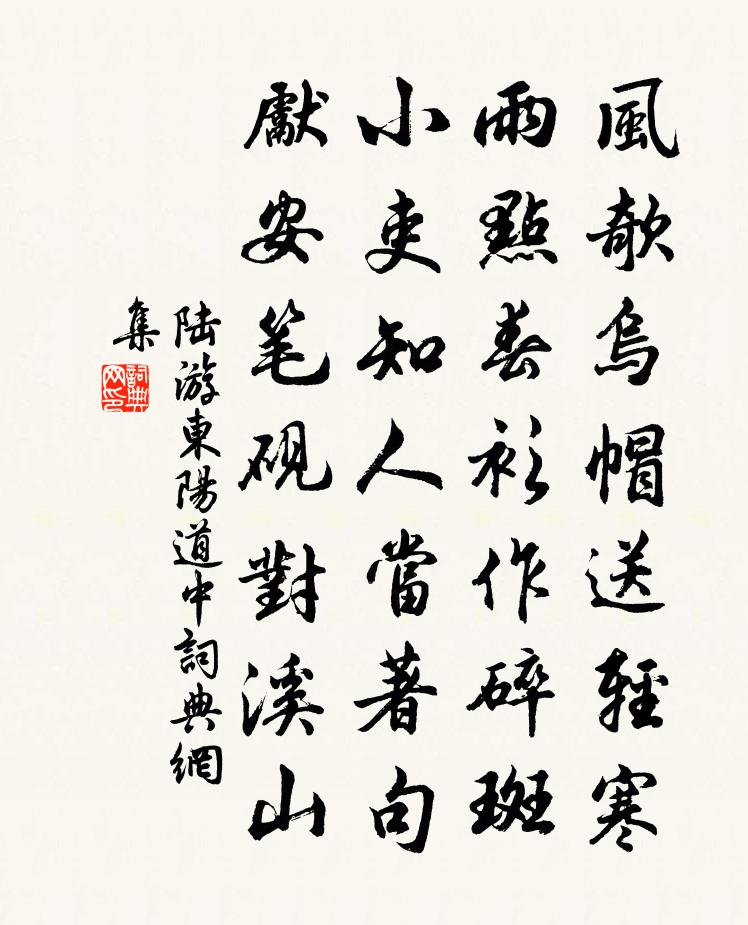 風欹烏帽送輕寒
雨點春衫作碎斑
小吏知人當著句
獻安笔硯對溪山
陸游東陽道中詞典網
集
詞典
网印